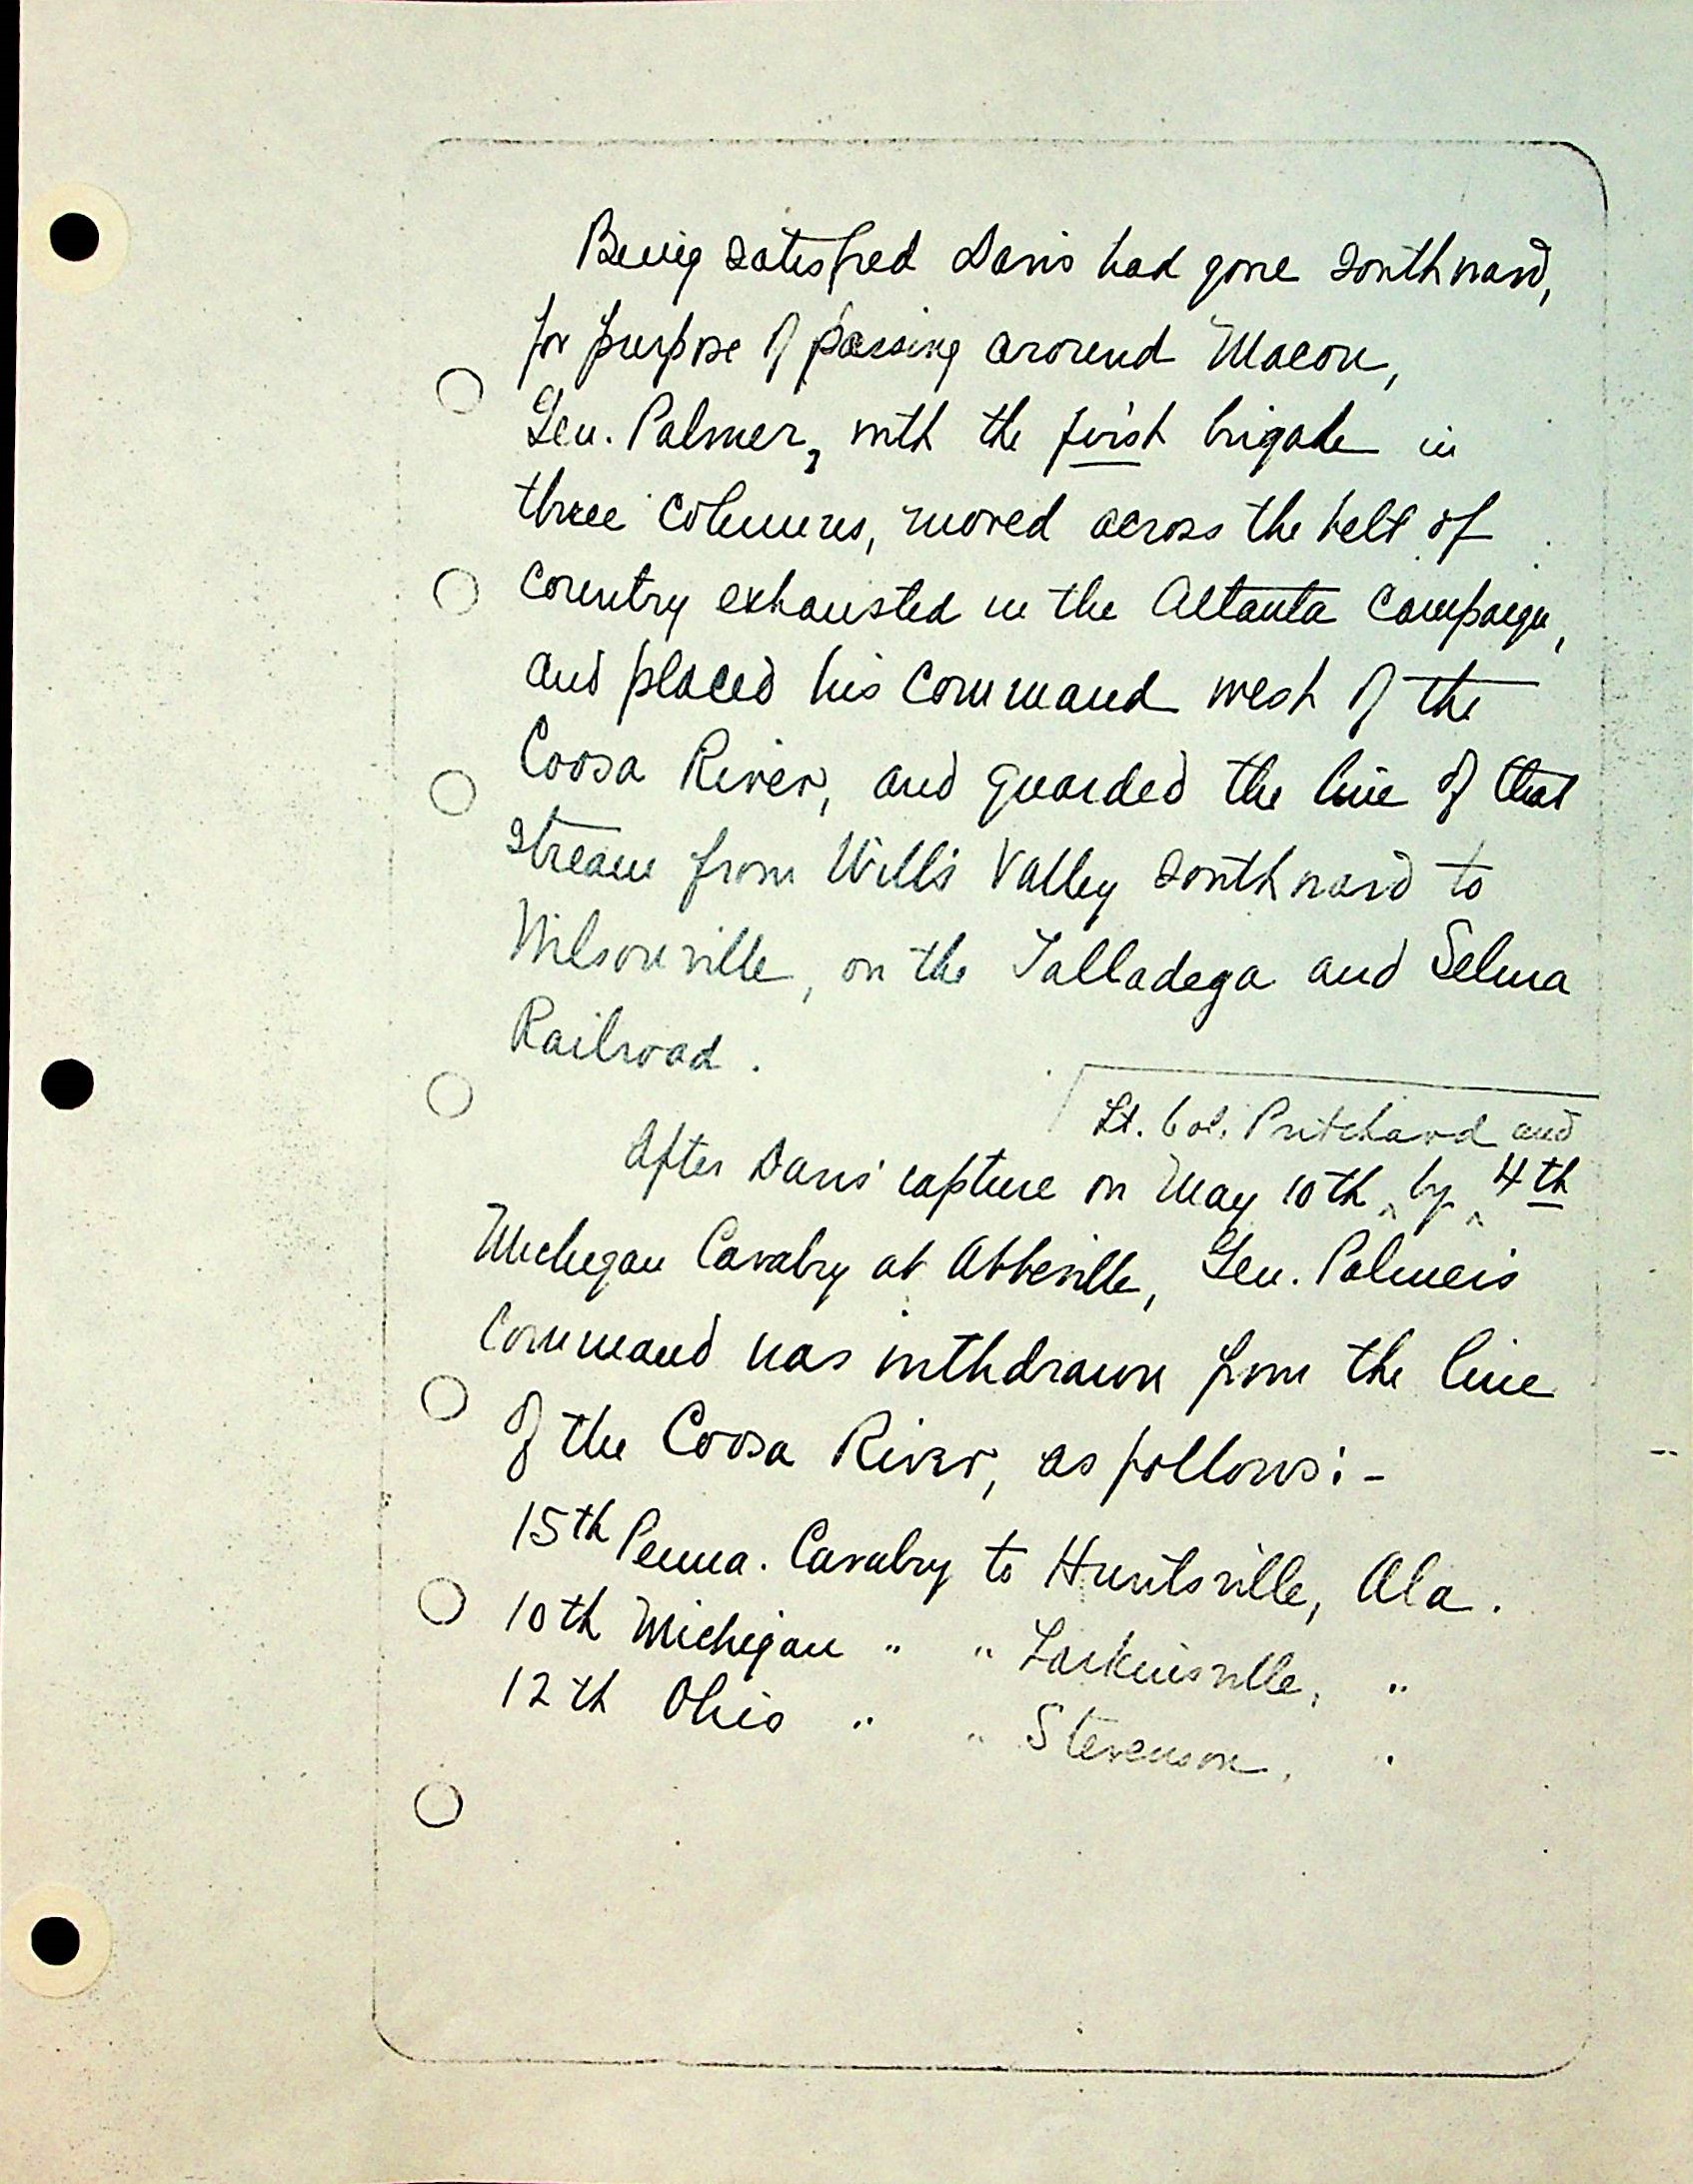 Being satisfied Davis had gone southward,
for purpose of passing around Macon,
Gen. Palmer, with the first brigade in
three columns, moved across the belt of
country exhausted in the Altanta Campaign,
and placed his command west of the
Coosa River, and guarded the line of that
stream from Will's Valley southward to
Wilsonville, on the Talladega and Selma
Railroad.
Lt. Col. Pritchard and
After Davis' capture on May 10th, by 4th
Michigan Cavalry at Abbeville, Gen. Palmer's
command was withdrawn from the line
of the Coosa River, as follows:-
15th Penna. Cavalry to Huntsville, Ala.
10th Michigan " " Larkinsville, "
12th Ohio " " Stevenson, "